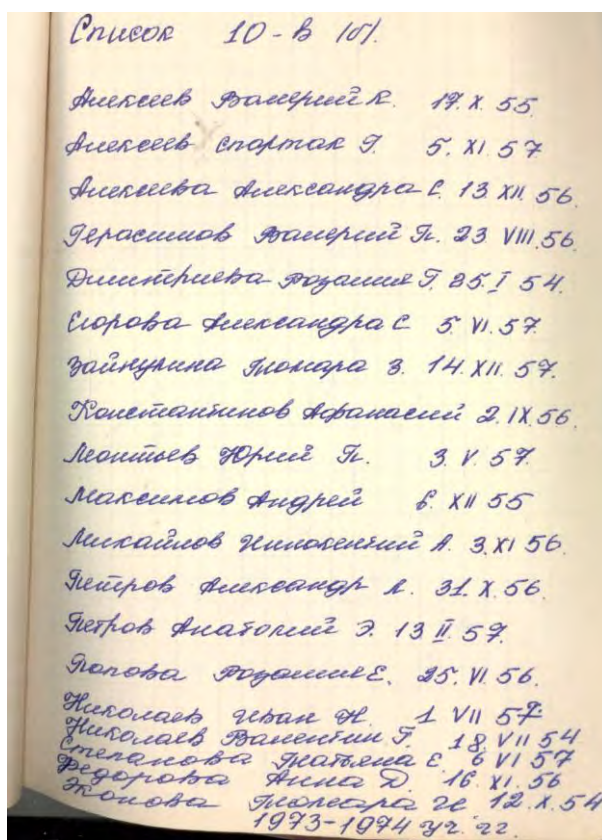 Список 10-в (б).
Алексеев Валерий К. 17. X. 55
Алексеев Спартак Г. 5. XI. 57
Алексеева Александра С. 13. XII. 56.
Герасимов Валерий П. 23 VIII. 56.
Димитриева Розалия Г. 25. I 54.
Егорова Александра С 5. VI. 57.
Зайнулина Тамара З. 14. XII. 57.
Константинов Афанасий 2. IX. 56.
Леонтьев Юрий П. 3. V. 57.
Максимов Андрей 6. XII 55
Михайлов Иннокентий А. 3. XI 56.
Петров Александр А. 31. X. 56.
Петров Анатолий Э. 13 II. 57.
Попова Розалия Е. 25. VI. 56.
Николаев Иван Н. 1 VII 57
Николаев Валентин Г. 18. VII 54
Степанова Татьяна Е 6 VI 57
Федорова Анна Д. 16. XI. 56
Экопова Тамара 12. X. 54
1973-1974 уч. гг